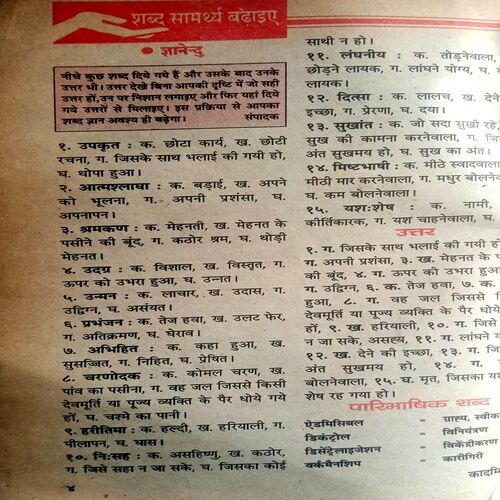 शब्द सामर्थ्य बढ़ाइए
• ज्ञानेन्दु
नीचे कुछ शब्द दिये गये हैं और उसके बाद उनके
उत्तर भी। उत्तर देखे बिना आपकी दृष्टि में जो सही
उत्तर हों, उन पर निशान लगाइए और फिर यहां दिये
गये उत्तरों से मिलाइए। इस प्रक्रिया से आपका
शब्द ज्ञान अवश्य ही बढ़ेगा। संपादक
१. उपकृत : क. छोटा कार्य, ख. छोटी
रचना, ग. जिसके साथ भलाई की गयी हो,
घ. थोपा हुआ।
२. आत्मश्लाघा : क. बड़ाई, ख. अपने
को भूलना, ग. अपनी प्रशंसा, घ.
अपनापन।
३. श्रमकण : क. मेहनती, ख. मेहनत के
पसीने की बूंद, ग. कठोर श्रम, घ. थोड़ी
मेहनत।
४. उदग्र : क. विशाल, ख. विस्तृत, ग.
ऊपर को उभरा हुआ, घ. उन्नत।
५. उन्मन : क. लाचार, ख. उदास, ग.
उद्विग्न, घ. असंयत।
६. प्रभंजन : क. तेज हवा, ख. उलट फेर,
ग. अतिक्रमण, घ. घेराव।
७. अभिहित : क. कहा हुआ, ख.
सुसज्जित, ग. निहित, घ. प्रेषित।
८. चरणोदक : क. कोमल चरण, ख.
पांव का पसीना, ग. वह जल जिससे किसी
देवमूर्ति या पूज्य व्यक्ति के पैर धोये गये
हों, घ. चश्मे का पानी।
९. हरीतिमा : क. हल्दी, ख. हरियाली, ग.
पीलापन, घ. घास।
१०. निःसह : क. असहिष्णु, ख. कठोर,
ग. जिसे सहा न जा सके, घ. जिसका कोई
४
साथी न हो।
११. लंघनीय : क. तोड़नेवाला,
छोड़ने लायक, ग. लांघने योग्य, घ.
लायक।
१२. दित्सा : क. लालच, ख. देने
इच्छा, ग. प्रेरणा, घ. दया।
१३. सुखांत : क. जो सदा सुखी रहे,
सुख की कामना करनेवाला, ग. जि
अंत सुखमय हो, घ. सुख का अंत।
१४. मिष्टभाषी : क. मीठे स्वादवाला
मीठी मार करनेवाला, ग. मधुर बोलने
घ. कम बोलनेवाला।
१५. यशःशेष : क. नामी,
कीर्तिकारक, ग. यश चाहनेवाला, घ.
उत्तर
१. ग. जिसके साथ भलाई की गयी हो
ग. अपनी प्रशंसा, ३. ख. मेहनत के प
की बूंद, ४. ग. ऊपर को उभरा हुआ
ग. उद्विग्न, ६. क. तेज हवा, ७. क.
हुआ, ८. ग. वह जल जिससे
देवमूर्ति या पूज्य व्यक्ति के पैर धोये
हों, ९. ख. हरियाली, १०. ग. जिसे
न जा सके, असह्य, ११. ग. लांघने य
१२. ख. देने की इच्छा, १३. ग. जि
अंत सुखमय हो, १४. ग.
बोलनेवाला, १५. घ. मृत, जिसका यश
शेष रह गया हो।
पारिभाषिक शब्द
ऐडमिसिबल - ग्राह्य, स्वीका
डिकंट्रोल - विनियंत्रण
डिसेंट्रेलाइजेशन - विकेंद्रीकरण
वर्कमैनशिप - कारीगरी
कादम्बि